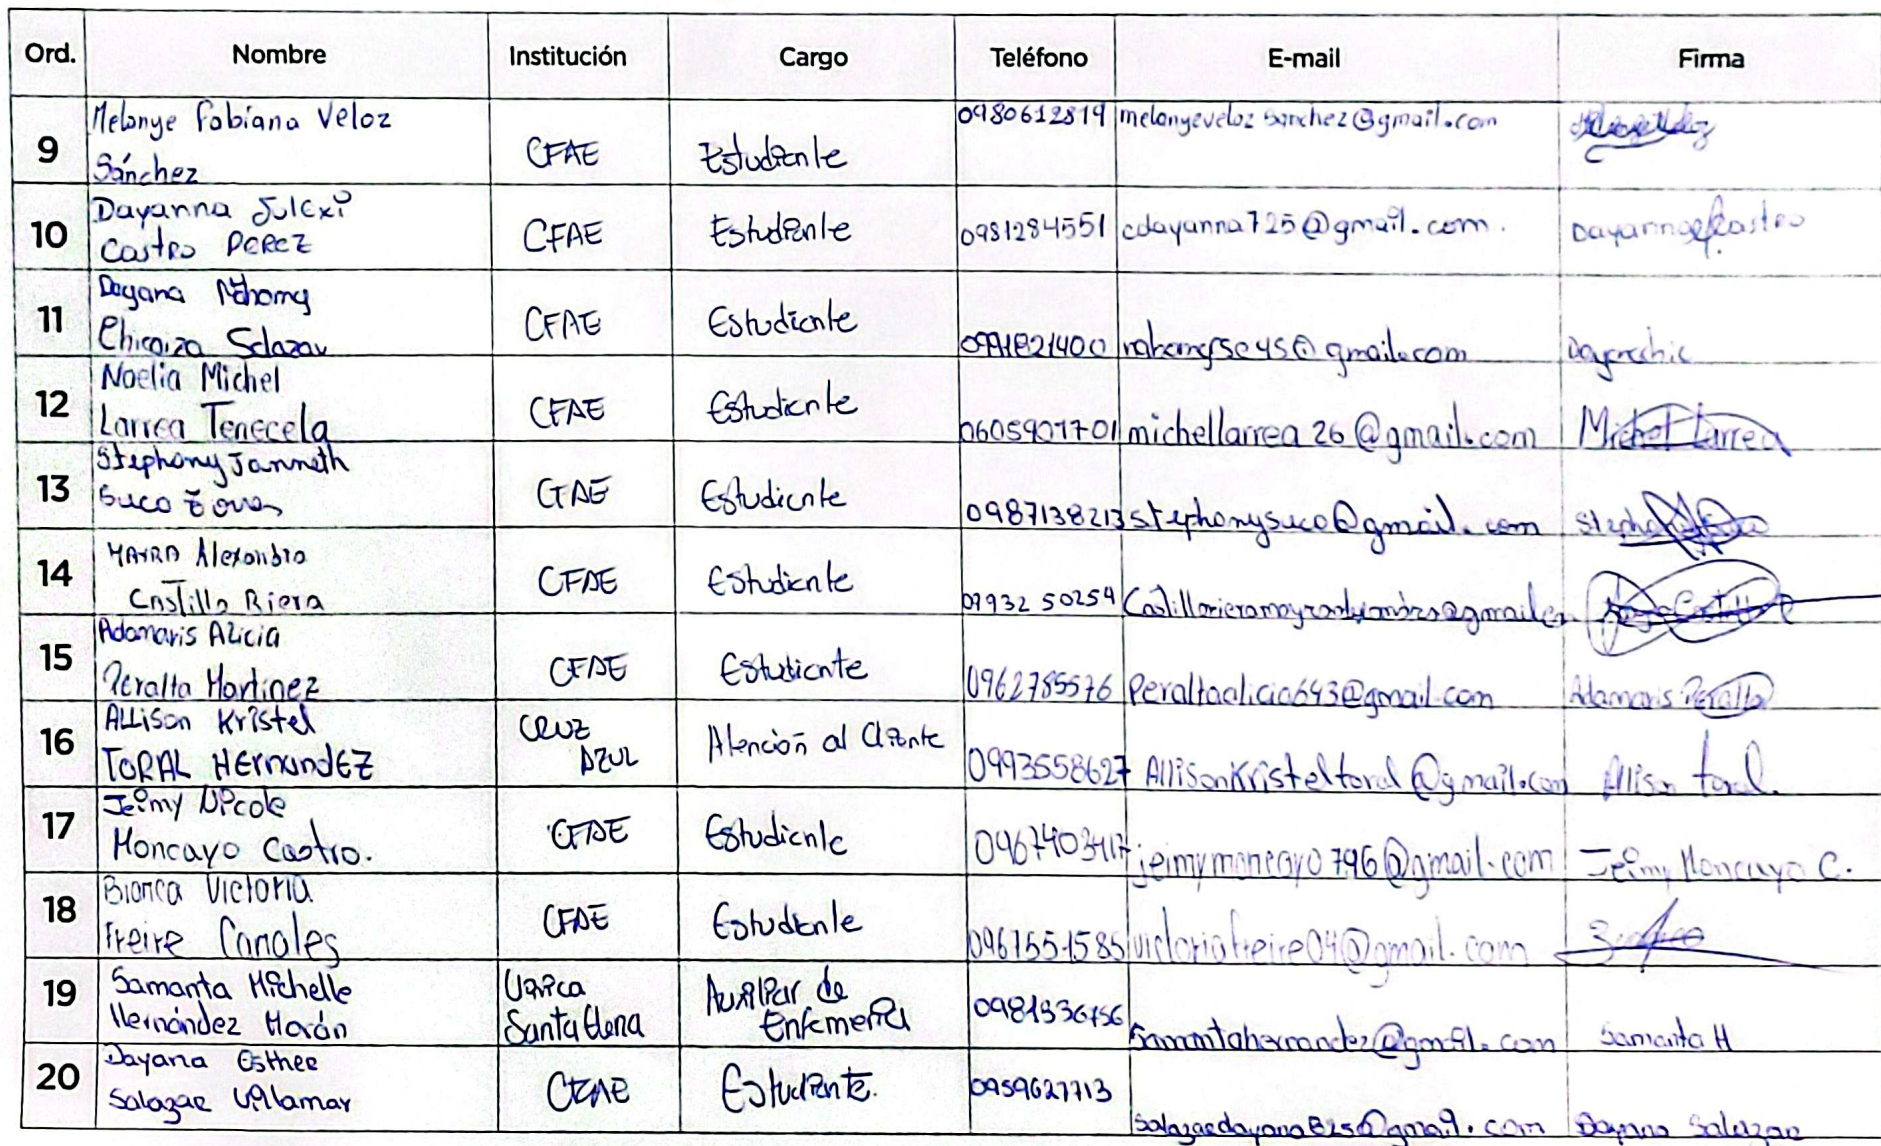 Ord. Nombre Institución Cargo Teléfono E-mail Firma
9 Melanye Fabiana Veloz Sánchez CFAE Estudiante 0980612819 melanyevelozsanchez@gmail.com
10 Dayanna Julexi Castro PEREZ CFAE Estudiante 0981284551 cdayanna725@gmail.com. Dayanna Castro
11 Dayana Nahomy Chicaiza Salazar CFAE Estudiante nahomysc45@gmail.com Dayanachic
12 Noelia Michel Larrea Tenecela CFAE Estudiante 0605901701 michellarrea26@gmail.com Michel Larrea
13 Stephony Janneth Suco CFAE Estudiante 0987138213 stephonysuco@gmail.com
14 MAYRA Alexandra Castillo Riera CFAE Estudiante 0993250254
15 Adamaris Alicia Peralta Martinez CFAE Estudiante 0962785576 Peraltaalicia643@gmail.com Adamaris Peralta
16 ALLison Kristel TORAL HErnandEZ CRUZ AZUL Atención al Cliente 0993558627 AllisonKristeltoral@gmail.com Allison toral.
17 Jeimy Nicole Moncayo Castro. CFAE Estudiante jeimymoncayo796@gmail.com Jeimy Moncayo C.
18 Bianca Victoria Freire Canales CFAE Estudiante 0967551585 victoriafreire04@gmail.com
19 Samanta Michelle Hernández Morán Santa Elena Auxiliar de Enfermería Samantahernandez@gmail.com Samanta H
20 Dayana Esther Salazar Villamar CFAE Estudiante. 0959627713 Dayana Salazar